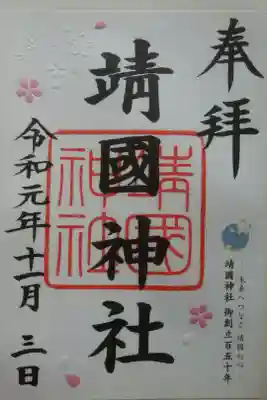 奉拝
未来へつなぐ
靖國神社 御創立百五十年
靖國神社
靖國
神社
令和元年十一月三日